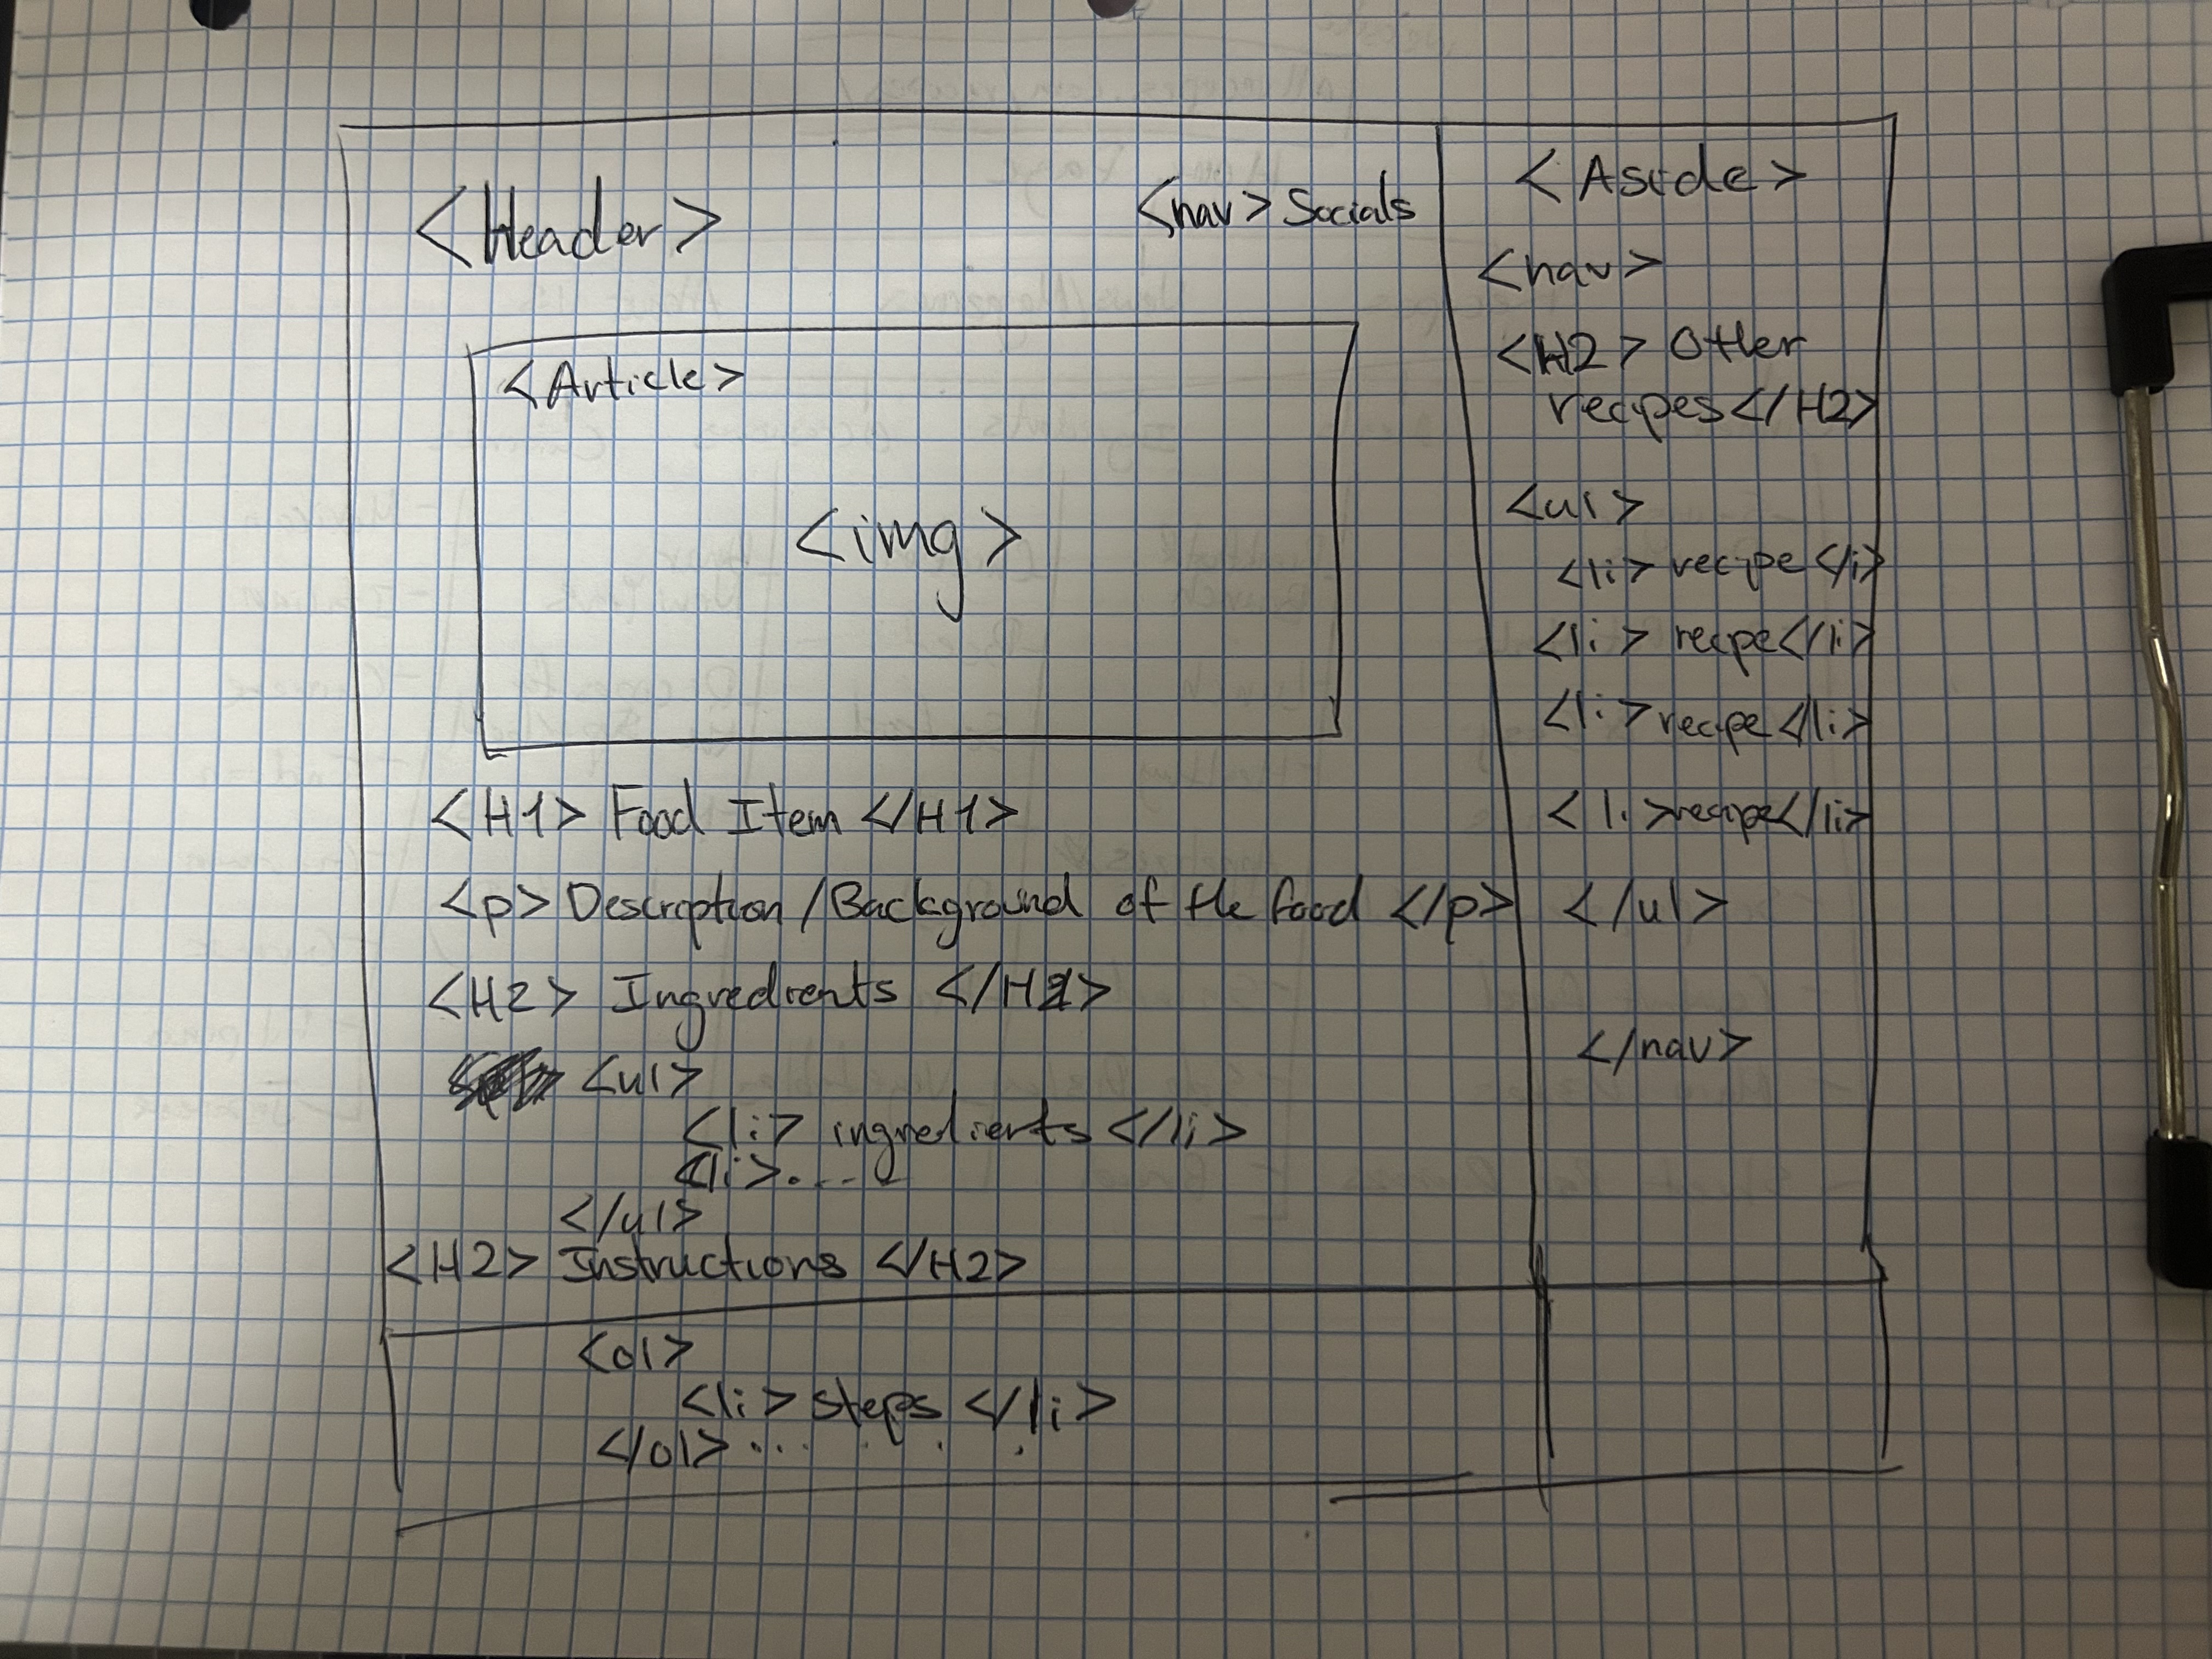 <Header>
<nav> Socials
<Article>
<img>
<H1> Food Item </H1>
<p> Description / Background of the food </p>
<H2> Ingredients </H2>
<ul>
<li> ingredients </li>
<li>....
</ul>
<H2> Instructions </H2>
<ol>
<li> steps </li>
</ol> ...
<Aside>
<nav>
<H2> Other
recipes</H2>
<ul>
<li> recipe </li>
<li> recipe</li>
<li> recipe </li>
<li>recipe</li>
</ul>
</nav>